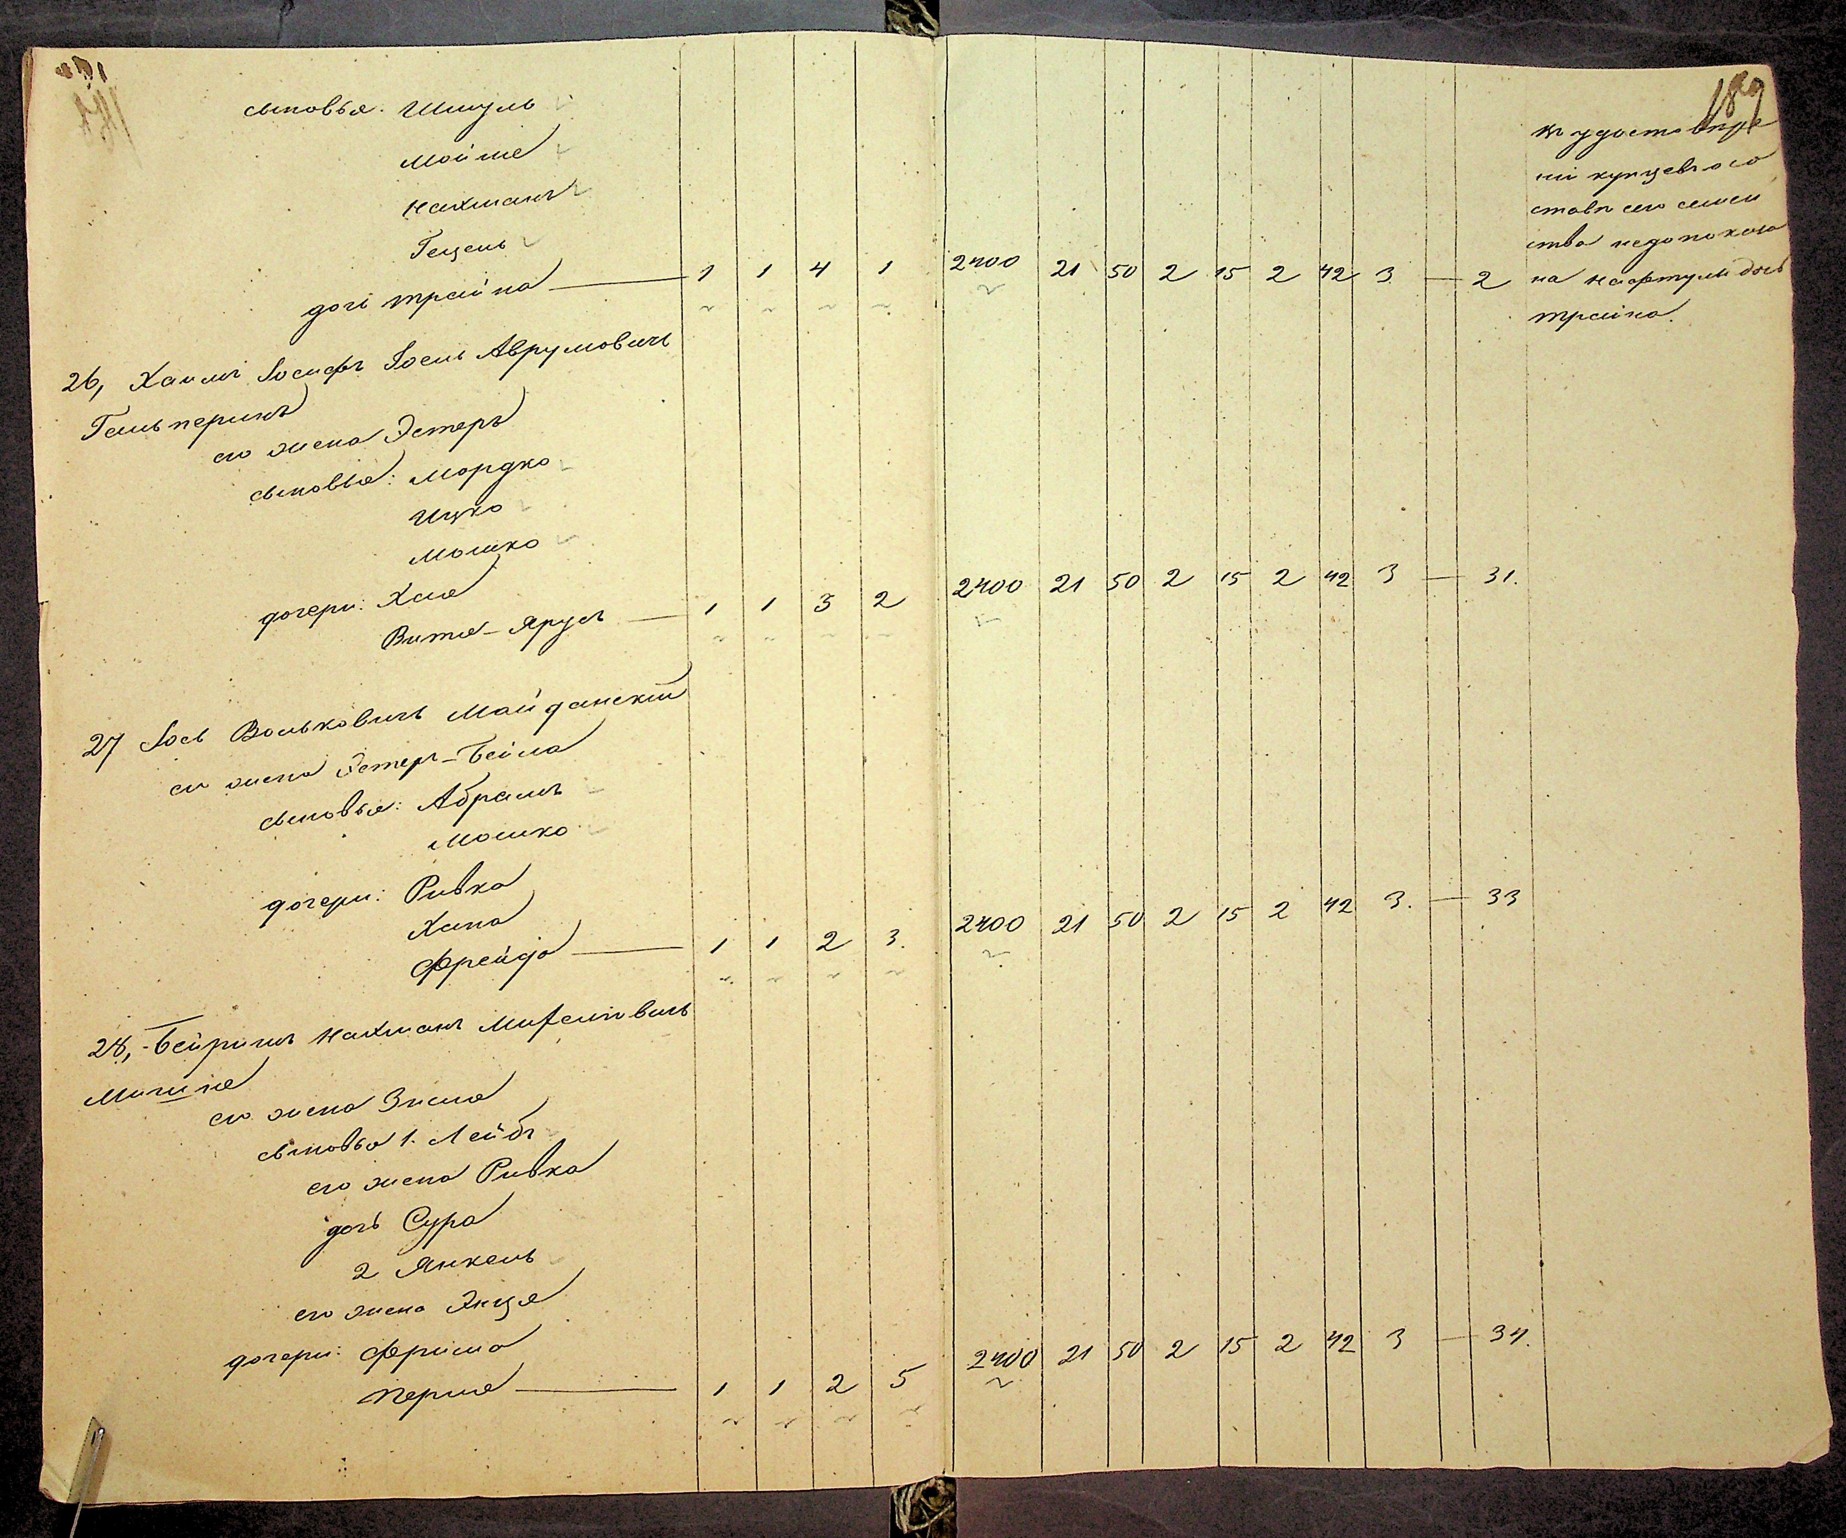 189
сыновья: Шмуль
Мойше
Нахманъ
Гецель
дочь Трайна — 1 1 4 1 2400 21 50 2 15 2 42 3 — 2
въ удостовѣре
ніи купцевъ о со
ставѣ его семей
ства недопоказа
на Нафтули дочь
Трайна.
26, Хаимъ Іосифъ Іосель Аврумовичъ
Гальперинъ
его жена Эстеръ
сыновья: Мордко
Ицко
Мошко
дочери: Хая
Витя-Ярусъ — 1 1 3 2 2400 21 50 2 15 2 42 3 — 31.
27 Іось Вольковичъ Майданскій
его жена Эстеръ-Бейла
сыновья: Абрамъ
Мошко
дочери: Ривка
Хана
Фрейда — 1 1 2 3. 2400 21 50 2 15 2 42 3. — 33
28, Бейришъ Нахманъ
его жена Зисла
сыновья 1. Лейбъ
его жена Ривка
дочь Сура
2 Янкель
его жена Энця
дочери: Фрима
Перля — 1 1 2 5 2400 21 50 2 15 2 42 3 — 34.